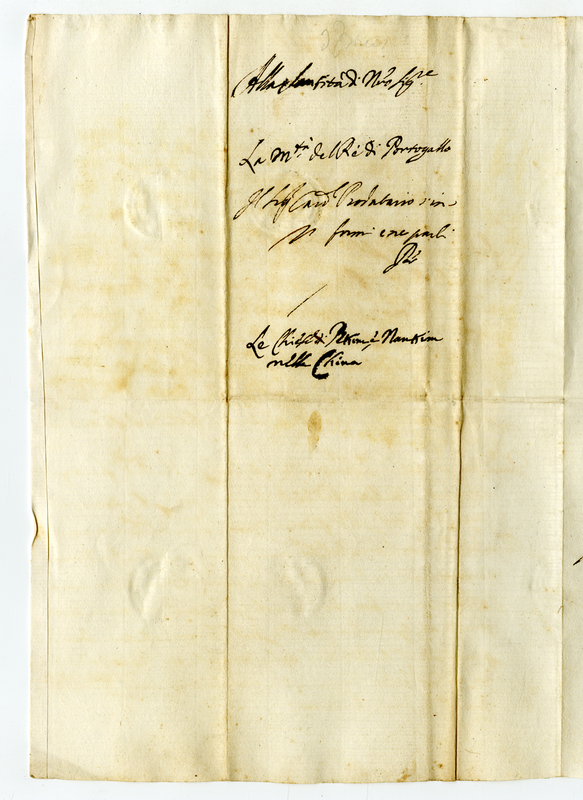 Alla Santità di N'ro Sig.re
La M.tà del Rè di Portogallo
Il Sig. Card. Prodatario s'in-
formi e ne parli
Le Chiese di Pekim è Nankim
nella China